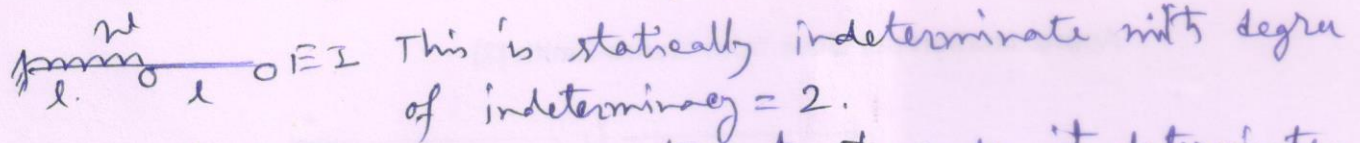 w
l. l EI This is statically indeterminate with degree
of indeterminacy = 2.